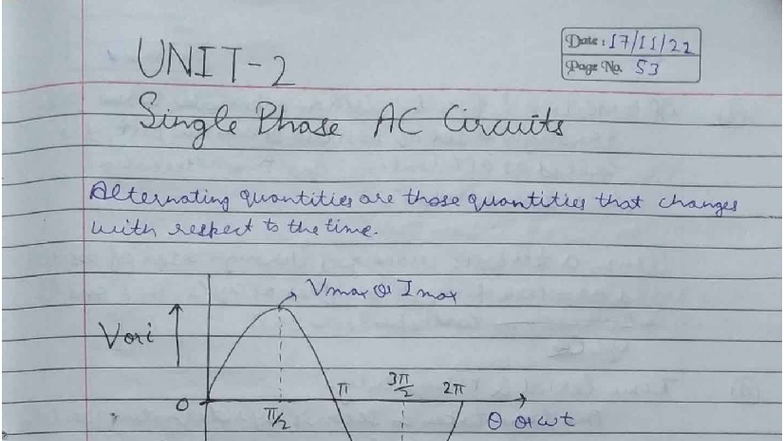 Date: 17/11/22
Page No. 53
UNIT-2
Single Phase AC Circuits
Alternating quantities are those quantities that changes
with respect to the time.
Vmax or Imax
V or i
π
3π/2
2π
0
π/2
θ or ωt